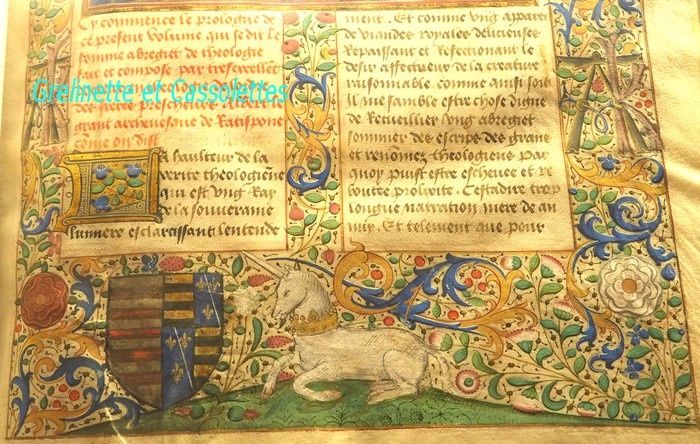 Cy commence le prologue de
ce present volume qui se dit le
somme abregiet de theologie
fait et compose par tresexcellent
Grelinette et Cassolettes
grant archevesque de Ratispone
come on dist
La haulteur de la
verite theologiene
qui est ung Ray
de la souveraine
lumiere esclarcissant lentende
ment. Et comme ung apparet
de viandes royales delicieuses
Repaissant et Refectionant le
desir affectueux de la creature
raisonnable. comme ainsi soit
Il me samble estre chose digne
de Recueillier ung abregiet
sommier des escrips des grans
et renomez theologiens Par
quoy puist estre eschevee et re
boutee prolixite. Cestadire trop
longue narration mere de an
nuy. Et telement que peur